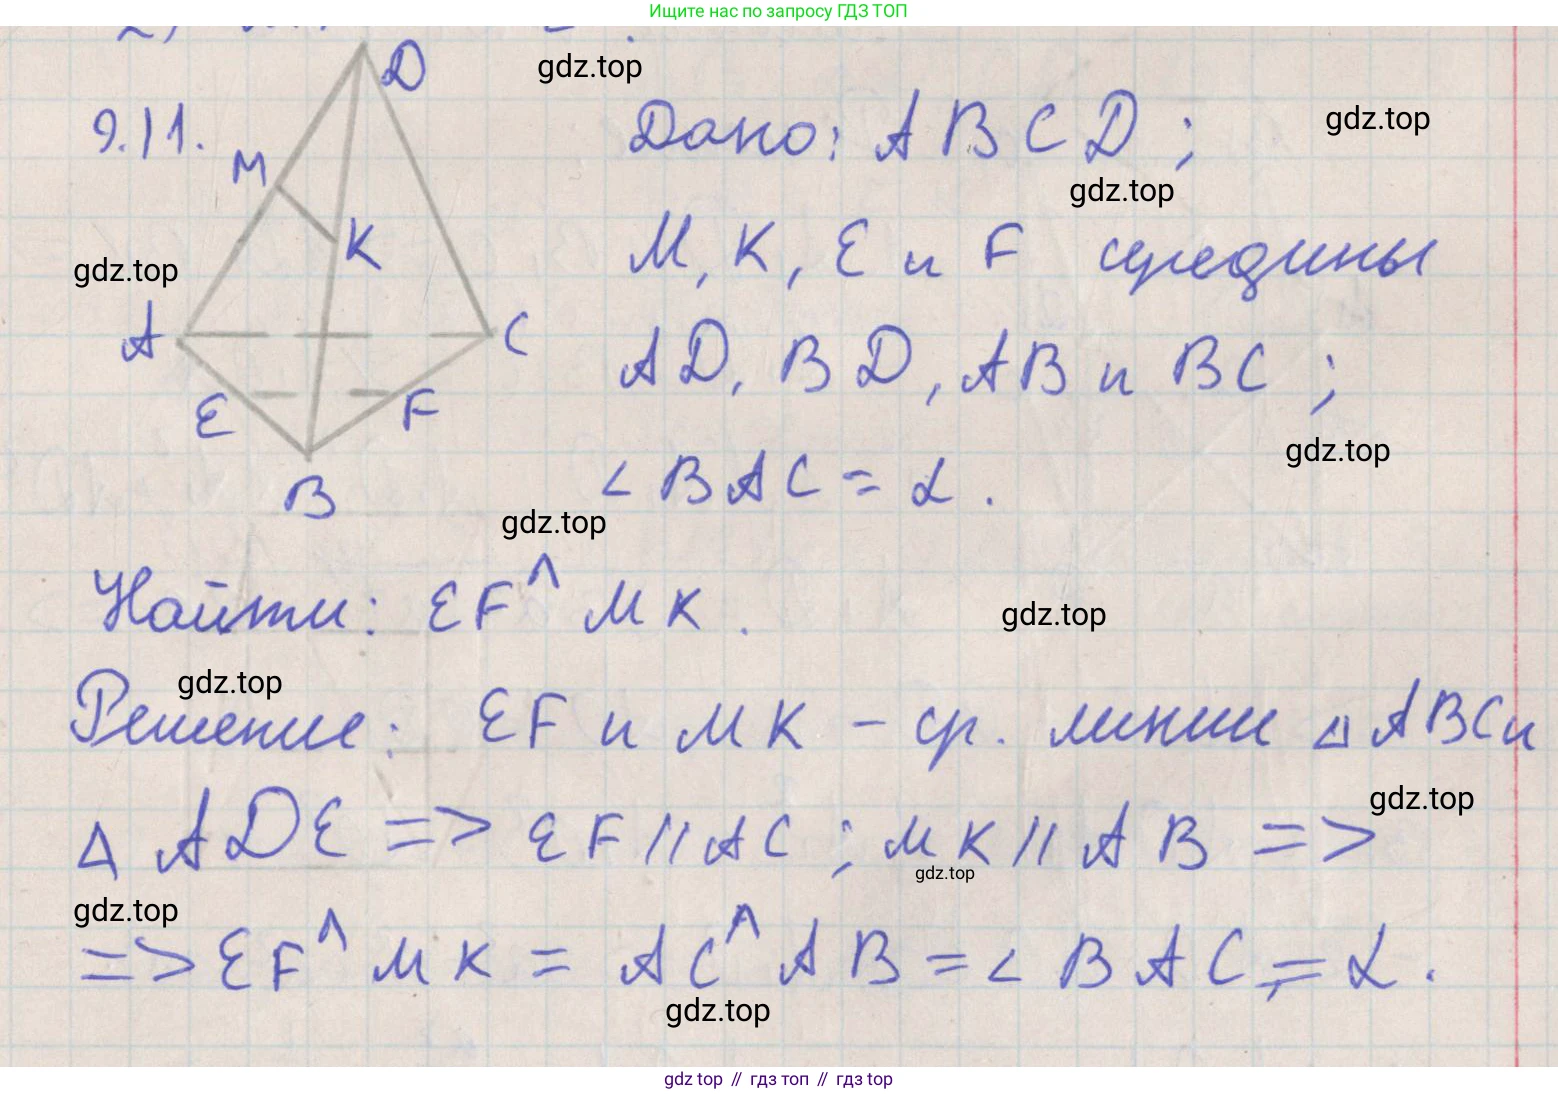 Ищите нас по запросу ГДЗ ТОП
D
gdz.top
9.11.
Дано: ABCD;
gdz.top
M
gdz.top
K
M, K, E и F середины
gdz.top
A
C
AD, BD, AB и BC;
E
F
gdz.top
B
∠BAC = α.
gdz.top
Найти: EF^MK.
gdz.top
gdz.top
Решение: EF и MK – ср. линии △ABC и
gdz.top
△ ADE => EF // AC; MK // AB =>
gdz.top
gdz.top
=> EF^MK = AC^AB = ∠BAC = α.
gdz.top
gdz top // гдз топ // гдз top